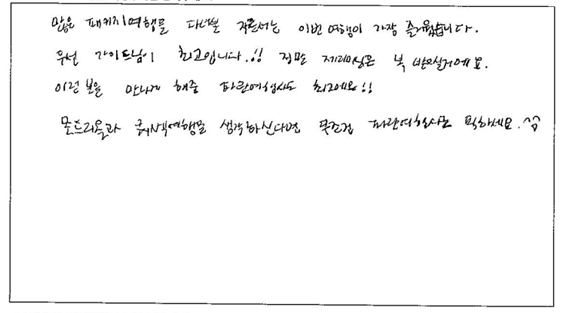 많은 패키지여행을 다녀본 저로서는 이번 여행이 가장 즐거웠습니다.
우선 가이드님이 최고입니다.!! 정말 제레미실은 복 받으실거예요.
이런 분을 만나게 해준 파란여행사도 최고예요!!
몬트리올과 퀘백여행을 생각하신다면 무조건 파란여행사로 픽하세요.^^